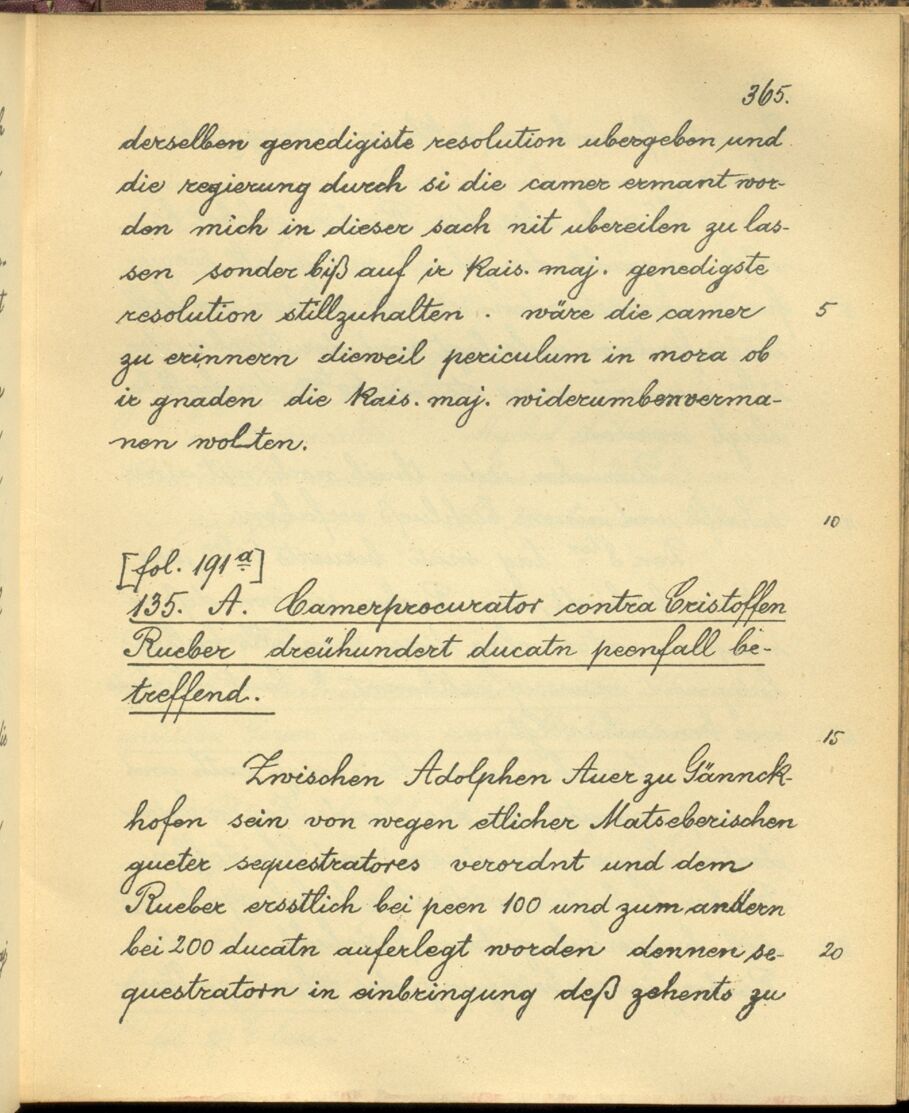 365.
derselben genedigiste resolution ubergeben und
die regierung durch si die camer ermant wor-
den mich in dieser sach nit ubereilen zu las-
sen sonder biß auf ir kais. maj. genedigste
resolution stillzuhalten. wäre die camer 5
zu erinnern dieweil periculum in mora ob
ir gnaden die kais. maj. widerumben verma-
nen wolten.
10
[fol. 191a]
135. A. Camerprocurator contra Cristoffen
Rueber dreühundert ducatn peenfall be-
treffend.
15
Zwischen Adolphen Auer zu Gännck-
hofen sein von wegen etlicher Matseberischen
gueter sequestratores verordnt und dem
Rueber ersstlich bei peen 100 und zum andern
bei 200 ducatn auferlegt worden dennen se- 20
questratorn in einbringung deß zehents zu